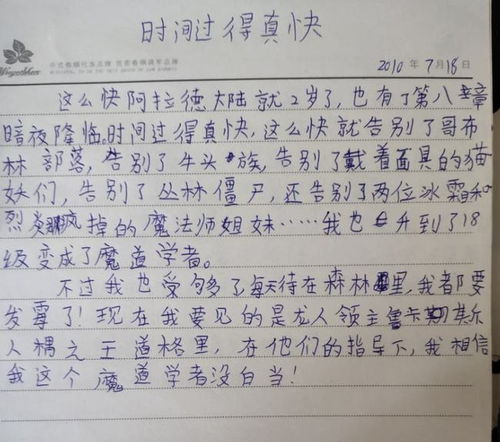 时间过得真快
2010 年 7月18日
这么快阿拉德大陆就2岁了,也有了第八章
暗夜降临。时间过得真快,这么快就告别了哥布
林部落,告别了牛头族,告别了戴着面具的猫
妖们,告别了丛林僵尸,还告别了两位冰霜和
烈焰疯掉的魔法师姐妹……我也升到了18
级变成了魔道学者。
不过我也受够了每天待在森林里,我都要
发霉了!现在我要见的是龙人领主鲁卡斯其乐
人偶之王道格里,在他们的指导下,我相信
我这个魔道学者没白当!